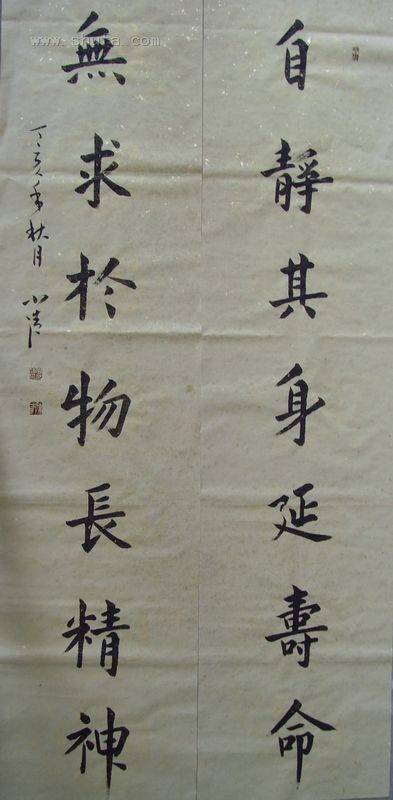 自靜其身延壽命
無求於物長精神
丁亥年秋月
www.shufa.com